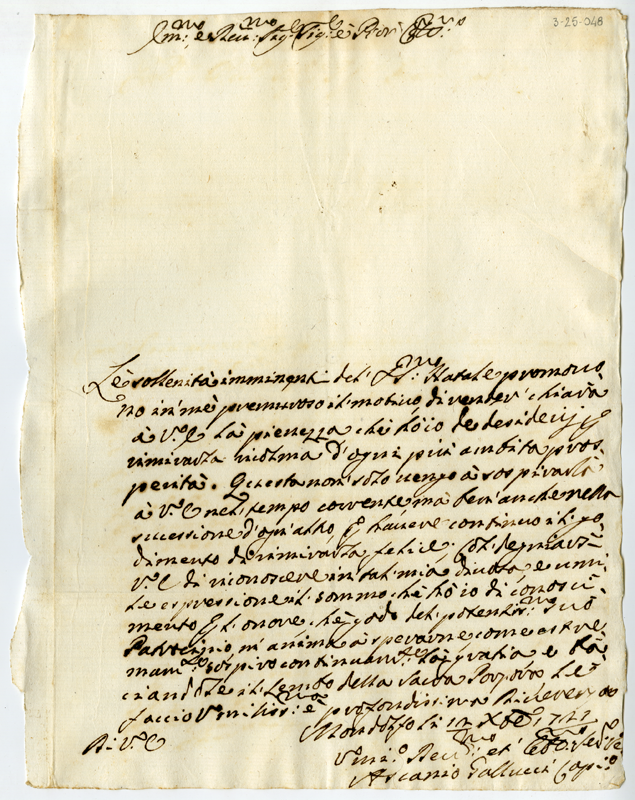 3-25-048
Em.mo e Rev.mo Sig.r Sig.r e P.ron Col.mo
Le sollenità imminenti del S.mo Natale promovo
no in' mè premuroso il motivo di render' chiara
à V.E. la pienezza che hò io de desiderij p
rimirarla ricolma d'ogni più ambita pros
perità. Questa non' solo vengo à sospirarla
à V.E. nel tempo corrente mà ben' anche nella
successione d'ogn'altro p havere continuo il go
dimento di rimirarla felice. 
V.E. di riconoscere in tal mia divota, e umi
le espressione il sommo che hò io di conosci
mento p l'onore, che godo del potentiss.mo suo
Patrocinio, m'anima à sperarne come estre
mam.te sospiro continuam.te la gratia e ba
ciandole il lembo della Sacra Porpora le
faccio umiliss.a e profondissima Riverenza
Mondolfo li 12 Xbre 1722
Di V.E.
Umil.mo Dev.mo et Obl.mo Ser.re
Ascanio Gallucci Cap.no